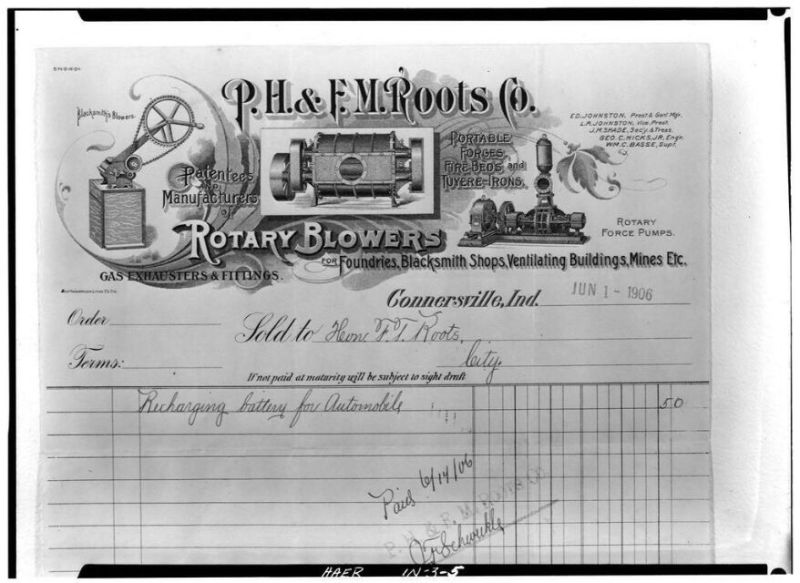 P.H. & F.M. Roots Co.
Blacksmith's Blowers.
ED. JOHNSTON, Prest & Genl Mgr.
L.R. JOHNSTON, Vice Prest.
J.M. SHADE, Sec'y. & Treas.
GEO. C. HICKS, JR. Engr.
WM. C. BASSE, Supt.
Patentees
and
Manufacturers
of
PORTABLE
FORGES,
FIRE BEDS and
TUYERE-IRONS.
ROTARY BLOWERS
ROTARY
FORCE PUMPS.
FOR Foundries, Blacksmith Shops, Ventilating Buildings, Mines Etc.
GAS EXHAUSTERS & FITTINGS.
Connersville, Ind. JUN 1 - 1906
Order
Sold to Hon F. T. Roots,
Terms: City.
If not paid at maturity will be subject to sight draft
Recharging battery for Automobile 50
Paid 6/14/06
P. H. & F. M. ROOTS CO.
HAER IN-3-5